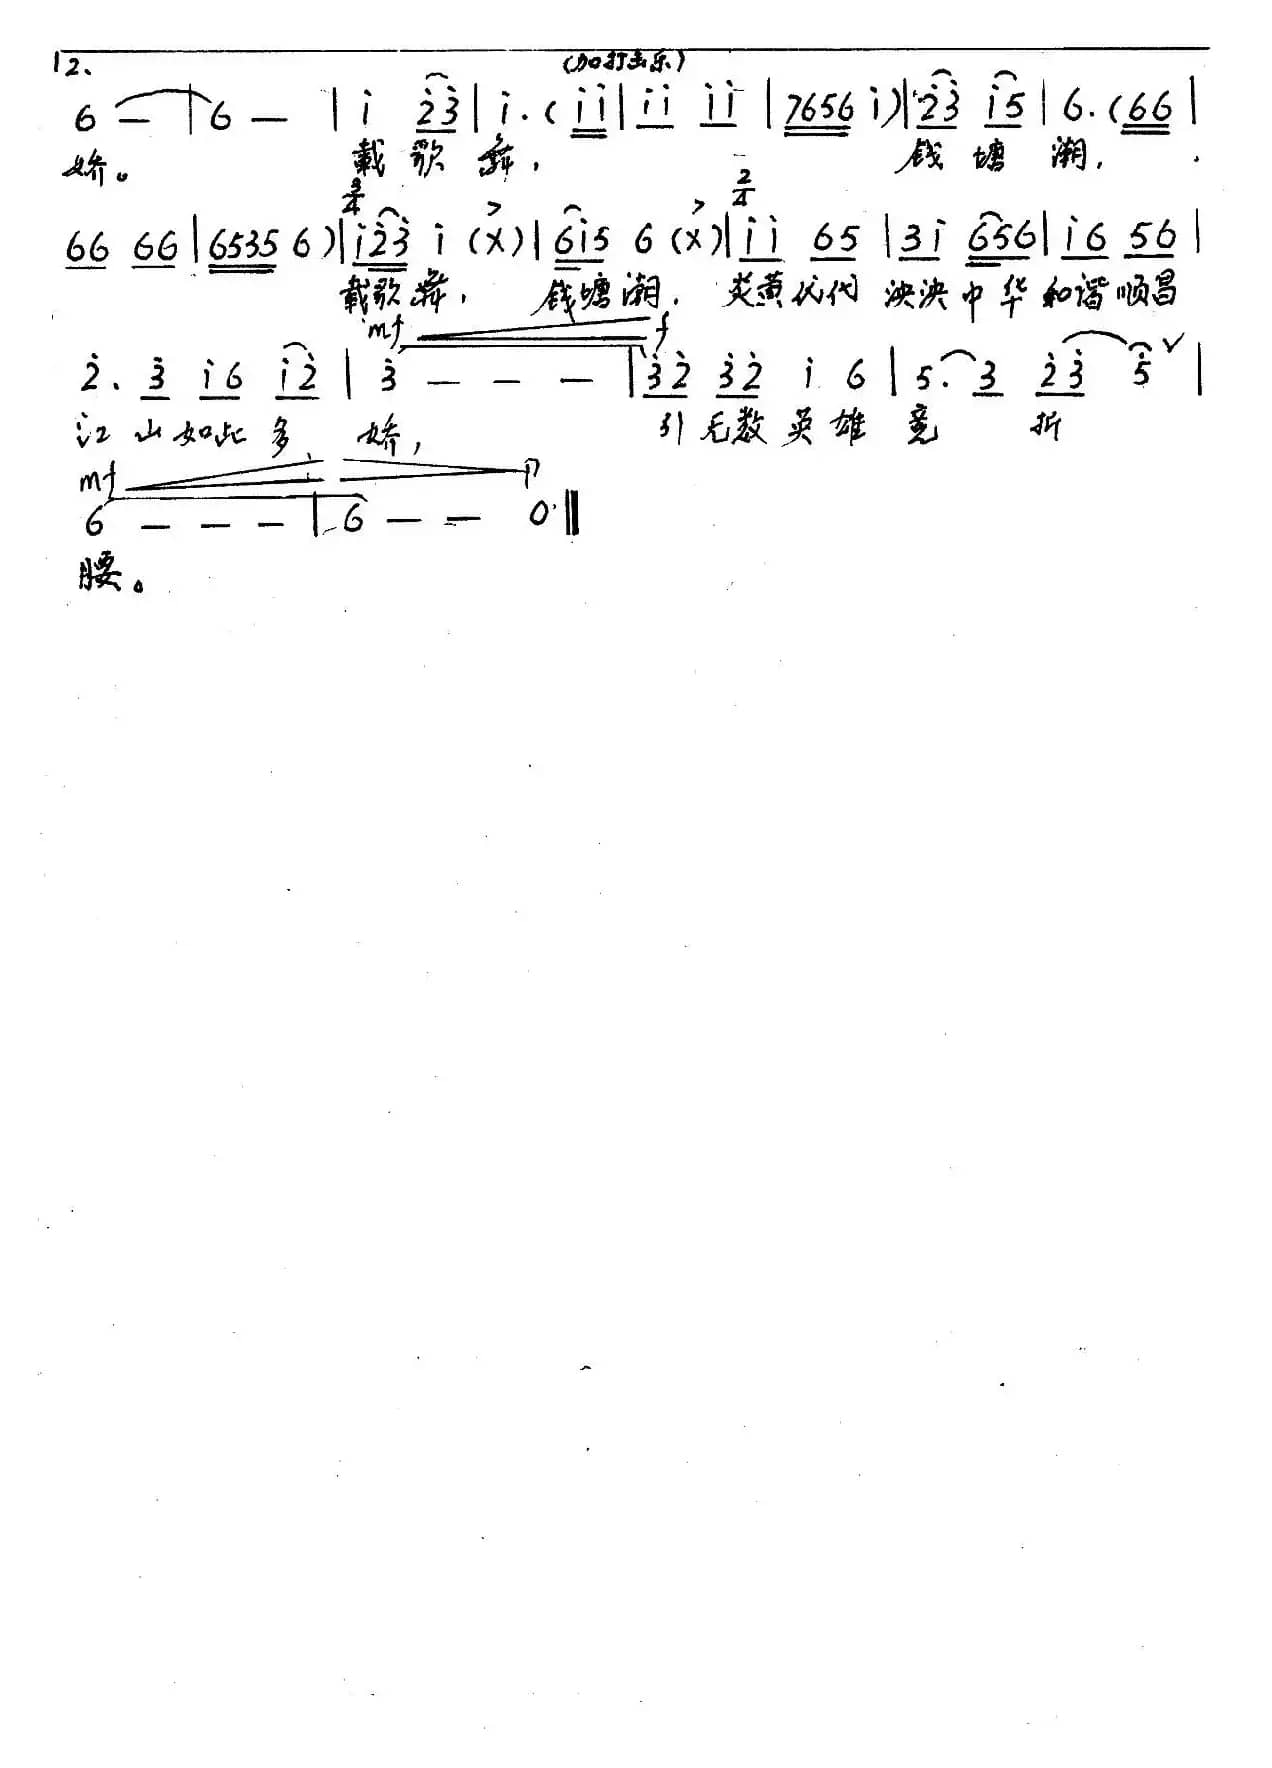 12.
(加打击乐)
6 — | 6 — | i 2̇3̇ | i. ( i i | i i i i | 7656 i ) | 2̇3̇ i5 | 6. ( 66 |
娇。 载歌舞, 钱塘潮,
3/4 2/4
66 66 | 6535 6 ) | i2̇3̇ i (X) | 6i5 6 (X) | i i 65 | 3i 656 | i6 56 |
载歌舞, 钱塘潮, 炎黄代代 泱泱中华 和谐顺昌
mf f
2̇. 3̇ i6 i2̇ | 3̇ — — — | 3̇2̇ 3̇2̇ i 6 | 5. 3 2̇3̇ 5̇ |
江山如此多 娇, 引无数英雄竞 折
mf p
6 — — — | 6 — — 0 ‖
腰。